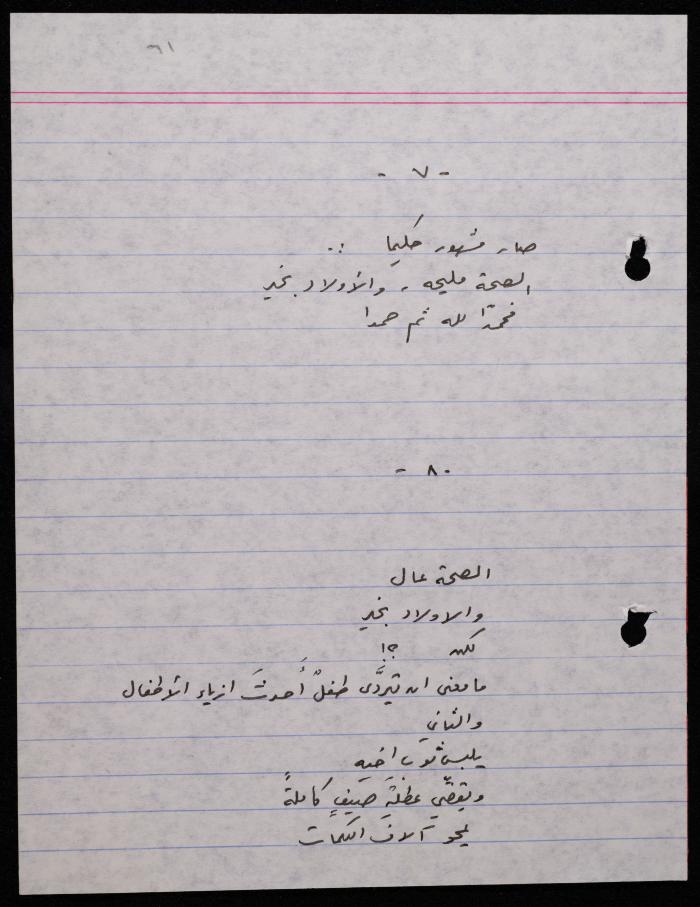 ٦١
- ٧ -
صار مشهور حكيما :.
الصحة مليحه ، والأولاد بخير
فحمدًا لله ثم حمدا
- ٨ -
الصحة عال
والاولاد بخير
لكن ؟!
ما معنى ان يتردَّى طفلٌ أَحدثَ ازياء الأطفال
والثاني
يلبس ثوب اخيه
ويقضّي عطلةَ صيفٍ كاملةً
يمحو آلاف الكلمات